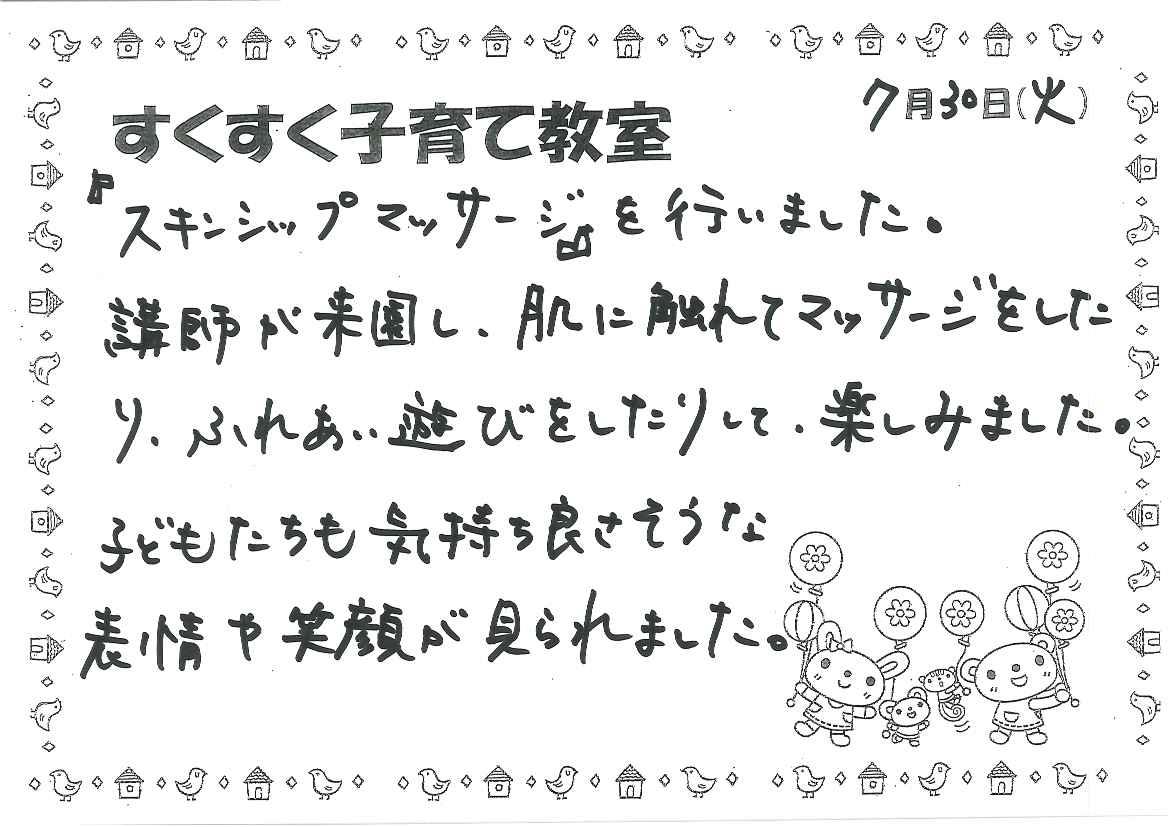 7月30日(火)
すくすく子育て教室
『スキンシップマッサージ』を行いました。
講師が来園し、肌に触れてマッサージをした
り、ふれあい遊びをしたりして、楽しみました。
子どもたちも気持ち良さそうな
表情や笑顔が見られました。